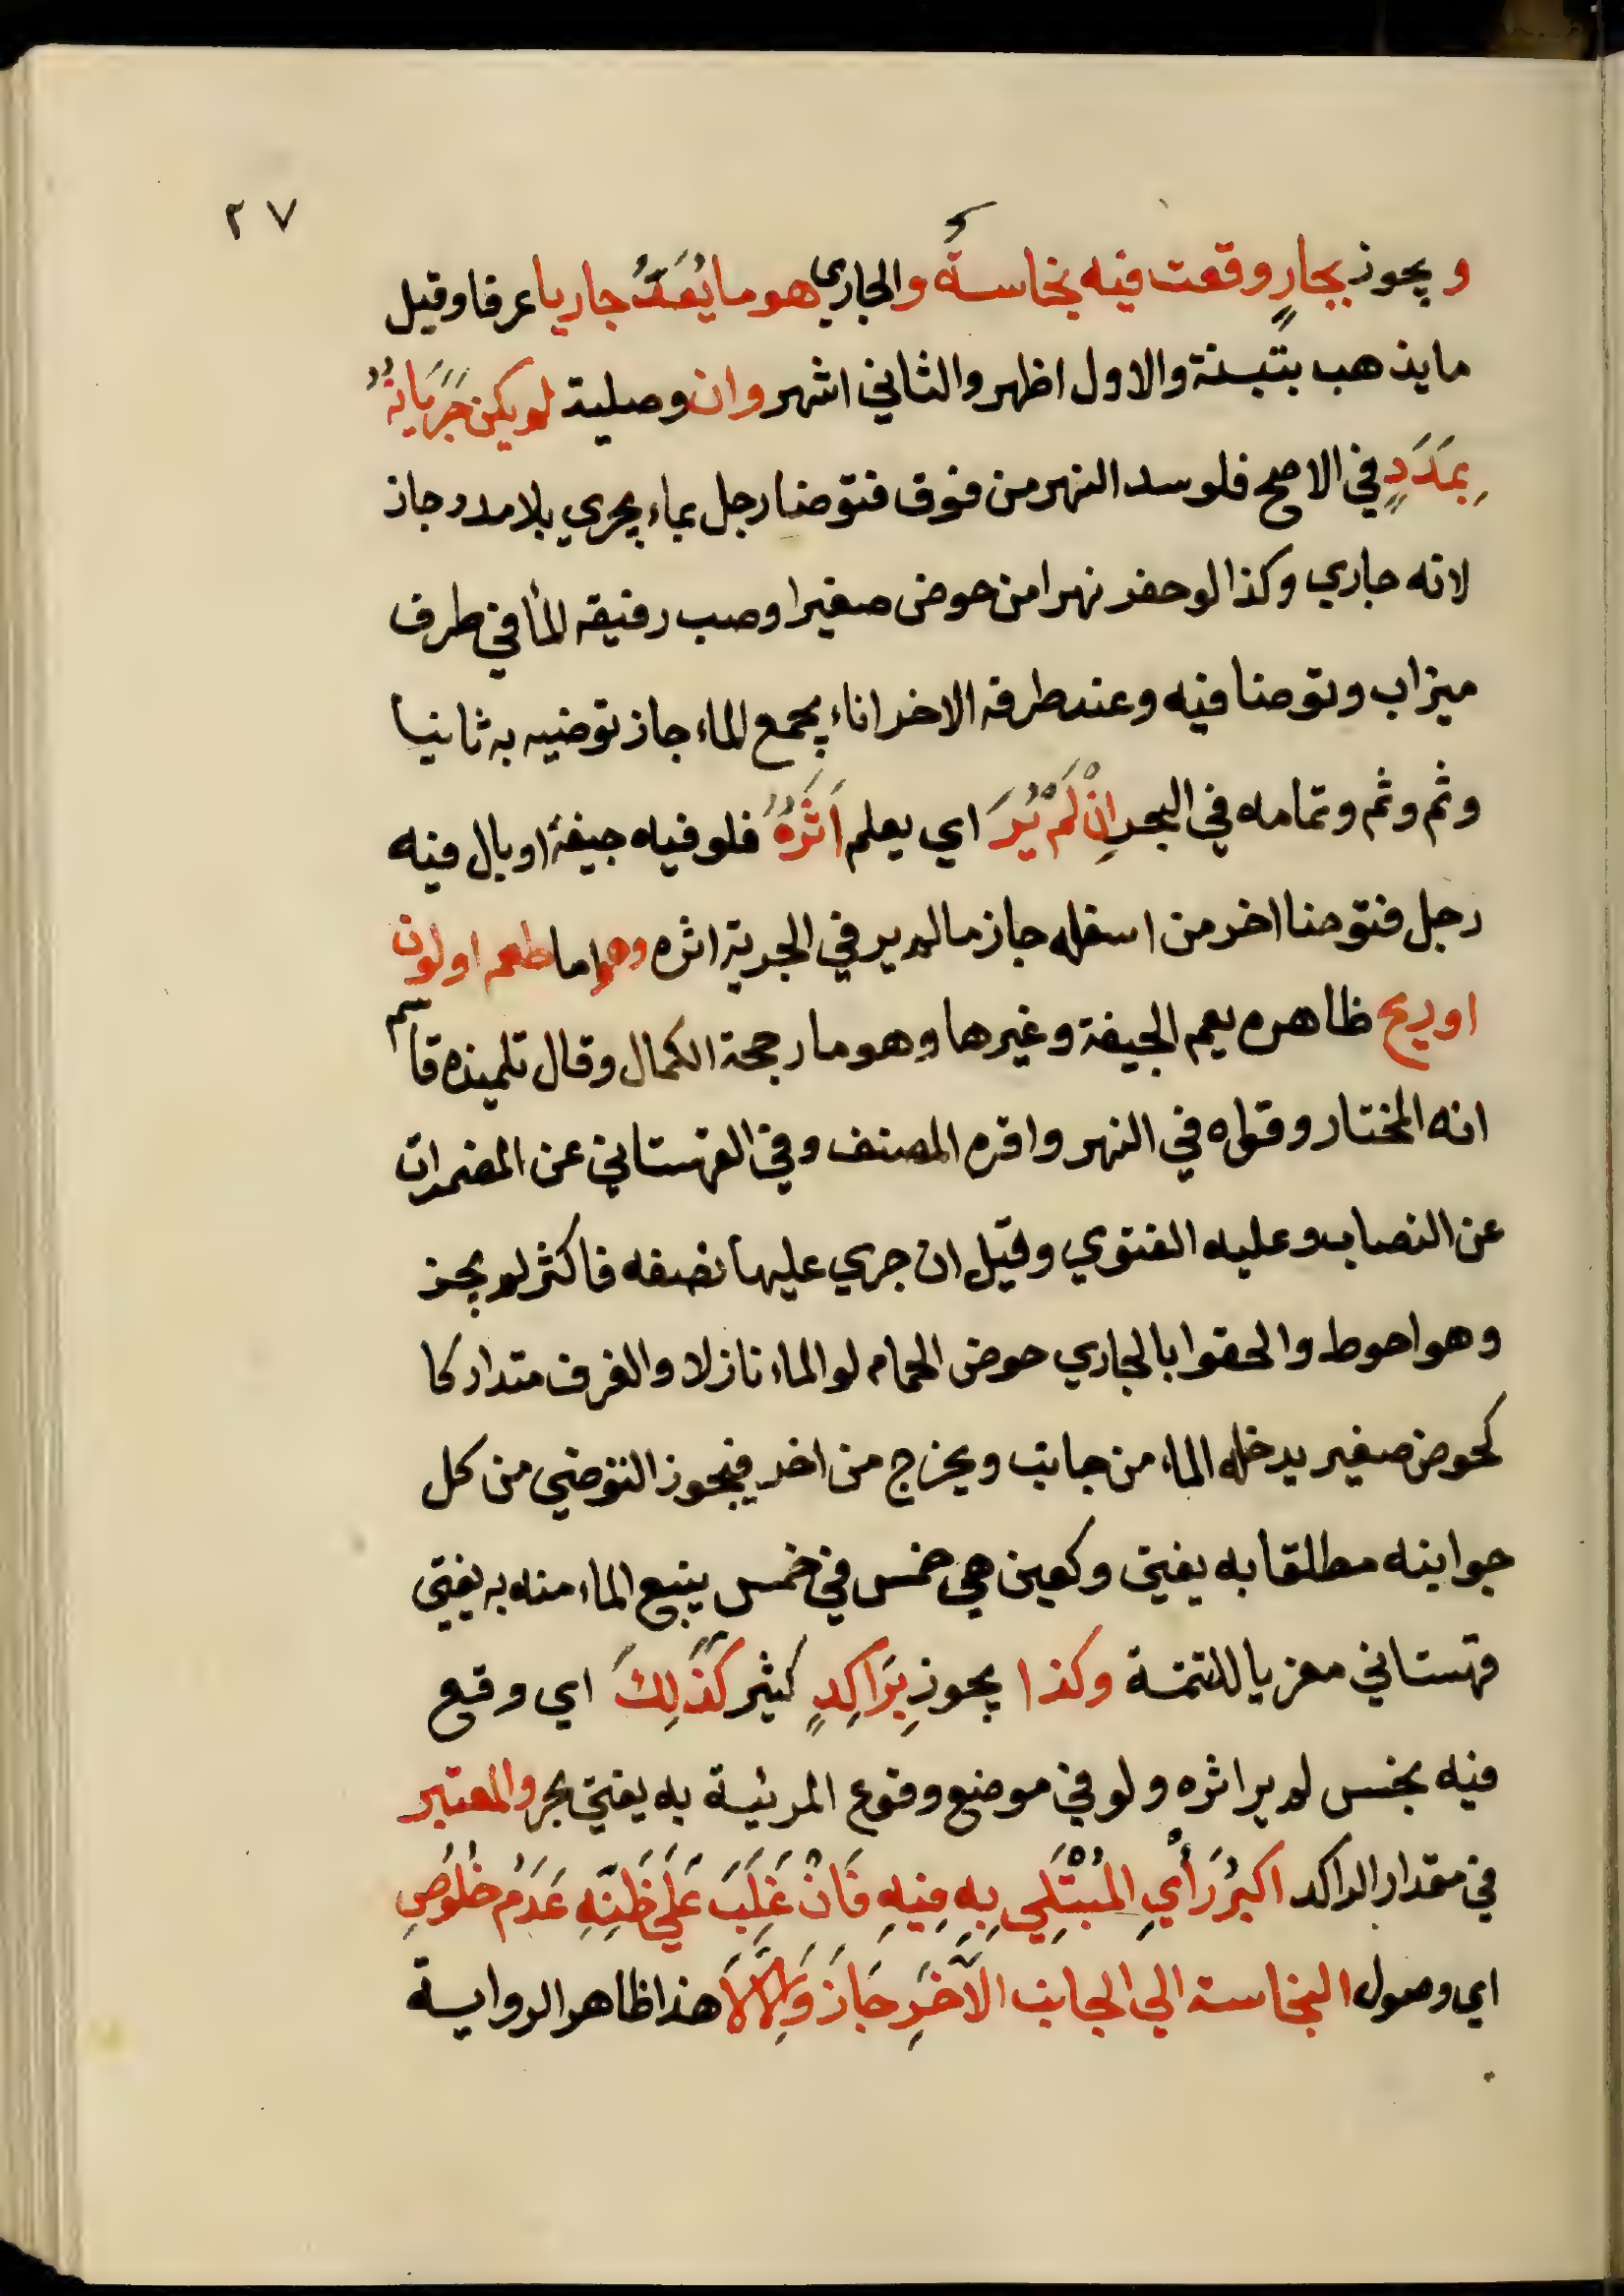 ٢٧
و يجوز بجارٍ وقعت فيه نجاسةٌ والجاري هو ما يُعَدُّ جاريا عرفا وقيل
ما يذهب بتبنة والاول اظهر والثاني اشهر وان وصلية لم يكن جَرَيَانُهُ
بِمَدَدٍ في الاصح فلو سد النهر من فوق فتوضا رجل بماء يجري بلا مدد جاز
لانه جاري وكذا لو حفر نهرا من حوض صغير او صب رفيقه الما في طرف
ميزاب وتوضا فيه وعند طرفه الاخر اناء يجمع الماء جاز توضيه به ثانيا
وثم وثم وتمامه في البحر اِنْ لَمْ يُرَ اي يعلم اَثَرُهُ فلو فيه جيفة او بال فيه
رجل فتوضا اخر من اسفله جاز ما لم ير في الجرية اثره وهو اما طعم او لون
او ريح ظاهره يعم الجيفة وغيرها وهو ما رجحه الكمال وقال تلميذه قاسم
انه المختار وقواه في النهر واقره المصنف وفي القهستاني عن المضمرات
عن النصاب وعليه الفتوي وقيل ان جري عليها نصفه فاكثر لم يجز
وهو احوط والحقوا بالجاري حوض الحمام لو الماء نازلا والغرف متداركا
كحوض صغير يدخله الماء من جانب ويخرج من اخر فيجوز التوضي من كل
جوانبه مطلقا به يفتي وكعين هي خمس في خمس ينبع الماء منه به يفتي
قهستاني معزيا للتتمة وكذا يجوز بِرَاكِدٍ كثير كَذَلِكَ اي وقع
فيه نجس لم ير اثره ولو في موضع وقوع المرئية به يفتي بحر والمعتبر
في مقدار الراكد اكبرُ رَأْيِ المُبْتَلِي بِهِ فِيهِ فَاِنْ غَلَبَ عَلَي ظَنِّهِ عَدَمُ خُلُوصِ
اي وصول النجاسة الي الجانب الآخَرِ جَازَ وَاِلَّا لَا هذا ظاهر الرواية